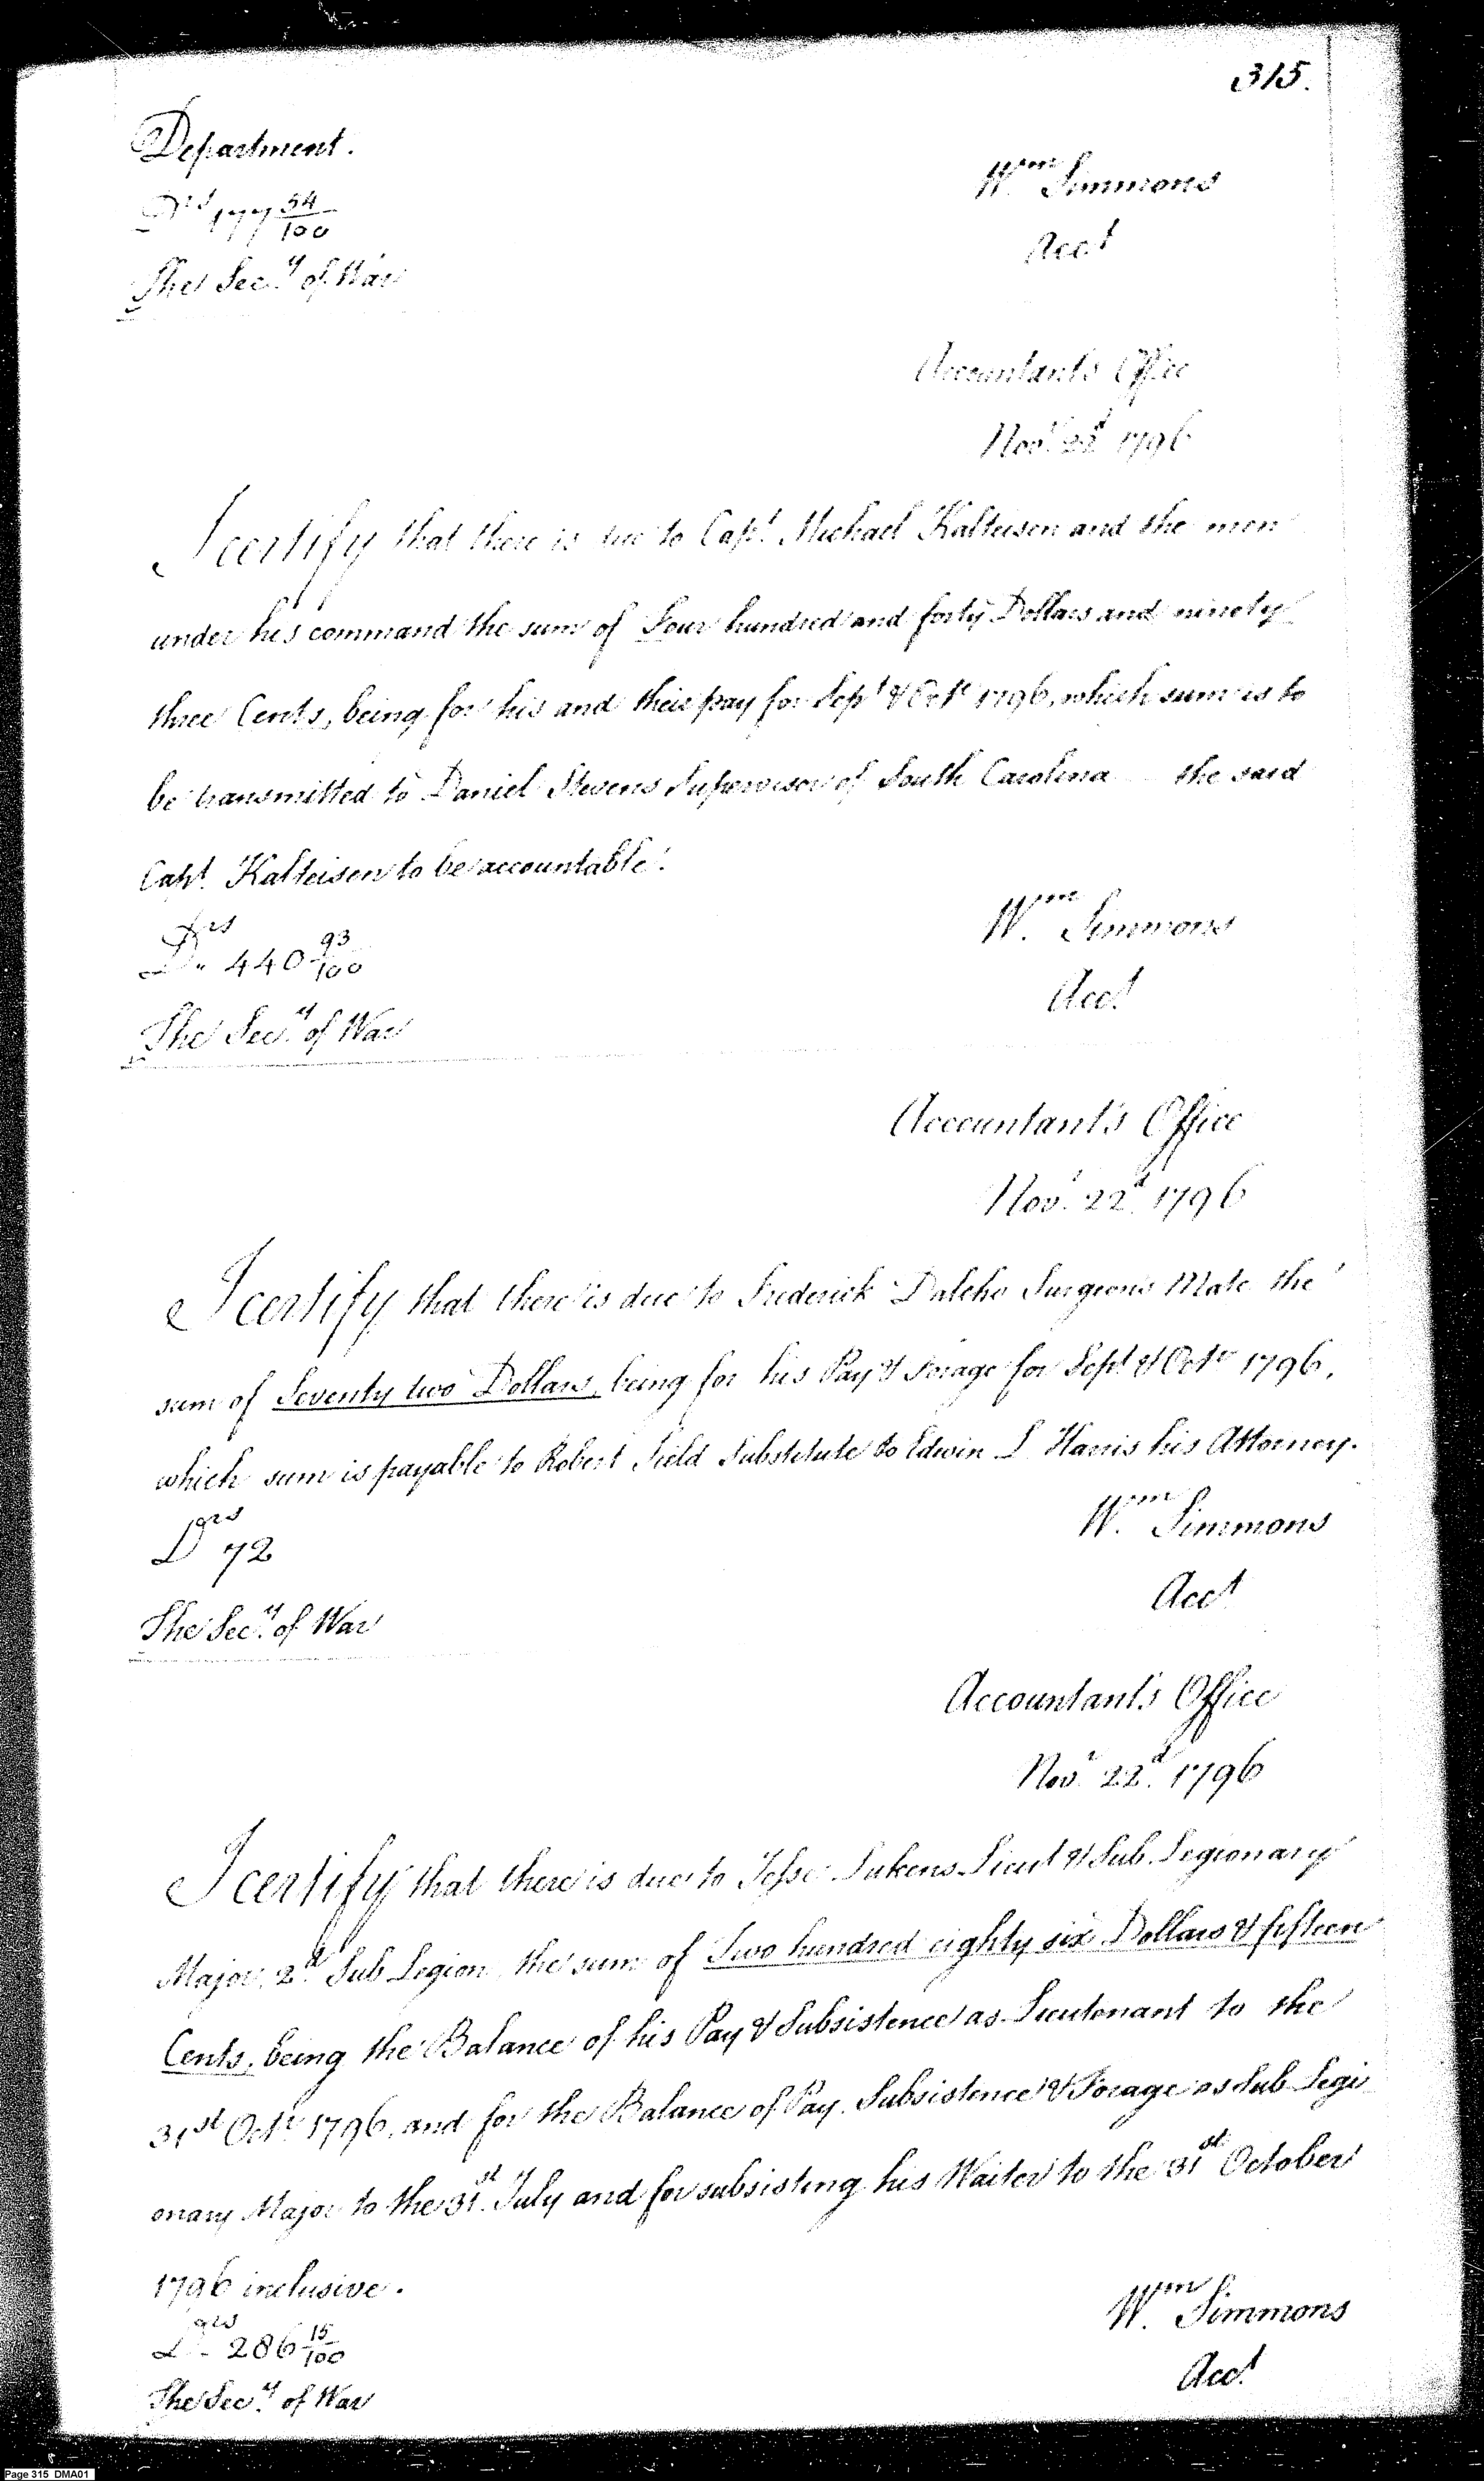 315.
Department.
Wm Simmons
Drs 177 54/100
Acct
The Secy of War
Accountant's Office
Novr 22d 1796
I certify that there is due to Capt. Michael Kalteisen and the men
under his command the sum of Four hundred and forty Dollars and ninety
three Cents, being for his and their pay for Sept & Octr 1796, which sum is to
be transmitted to Daniel Stevens Supervisor of South Carolina the said
Capt. Kalteisen to be accountable.
Wm Simmons
Drs 440 93/100
Acct
The Secy of War
Accountant's Office
Novr 22d 1796
I certify that there is due to Frederick Dalcho Surgeons Mate the
sum of Seventy two Dollars, being for his Pay & Forage for Sept & Octr 1796,
which sum is payable to Robert Field Substitute to Edwin L Harris his Attorney.
Wm Simmons
Drs 72
Acct
The Secy of War
Accountant's Office
Novr 22d 1796
I certify that there is due to Jesse Lukens Lieut & Sub. Legionary
Major, 2d Sub Legion the sum of Two hundred eighty six Dollars & fifteen
Cents, being the Balance of his Pay & Subsistence as Lieutenant to the
31st Octr 1796, and for the Balance of Pay. Subsistence & Forage as Sub Legi
onary Major to the 31st July and for subsisting his Waiter to the 31st October
1796 inclusive.
Wm Simmons
Drs 286 15/100
Acct
The Secy of War
Page 315 DMA01